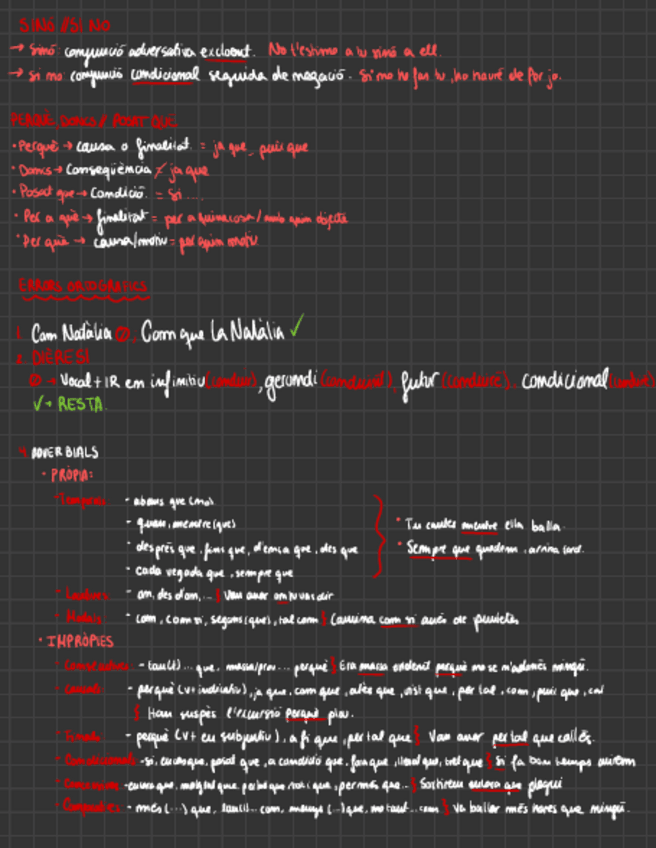 SINÓ // SI NO
→ Sinó: conjunció adversativa excloent. No l'estimo a tu sinó a ell.
→ Si no: conjunció condicional seguida de negació. Si no ho fas tu, ho hauré de fer jo.
PERQUÈ, DONCS // POSAT QUE
· Perquè → causa o finalitat. = ja que, puix que
· Doncs → Conseqüència ≠ ja que
· Posat que → Condició. = Si ...
· Per a què → finalitat = per a quina cosa / amb quin objecte
· Per què → causa/motiu = per quin motiu
ERRORS ORTOGRÀFICS
1. Com Natàlia. Com que La Natàlia ✓
2. DIÈRESI
→ Vocal + IR em infinitiu (conduir), gerundi (conduint), futur (conduiré). condicional
✓ → RESTA.
4. ADVERBIALS
· PRÒPIA:
- Temporals - abans que (no)
- quan, mentre (que)
- després que, fins que, d'ença que, des que
- cada vegada que, sempre que
· Tu cantes mentre ella balla.
· Sempre que quedem, arriba tard.
- on, des d'on, ... { Vam anar on tu vas dir
- Modals - com, com si, segons (que), tal com { Camina com si anés de puntetes
· IMPRÒPIES
- Consecutives - tan(t) ... que, massa/prou ... perquè { Era massa evident perquè no se n'adonés ningú.
- Causals - perquè (v + indicatiu), ja que, com que, atès que, vist que, per tal, com, puix que, car
{ Han suspès l'excursió perquè plou.
- Finals - perquè (v + en subjuntiu), a fi que, per tal que { Vam anar per tal que callés.
- Condicionals - si, en cas que, posat que, a condició que, fora que, llevat que, tret que { Si fa bon temps anirem
- Concessives - encara que, malgrat que, per bé que, tot i que, per més que... { Sortirem encara que plogui
- Comparatives - més (...) que, tan(t)... com, menys (...) que, no tant... com { Va ballar més hores que ningú.